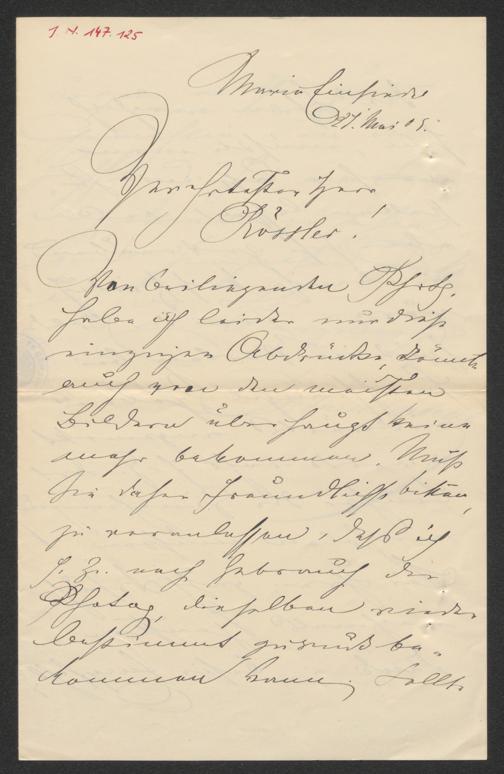 J. N. 147.125
Maria Einsiedl
27. Mai 05.
Verehrtester Herr
Rössler!
Von beiliegenden Photog.
habe ich leider nur diese
einzigen Abdrücke, könnte
auch von den meisten
Bildern überhaupt keine
mehr bekommen. Muß
Sie daher freundlichst bitten,
zu veranlassen, daß ich
s. Zt. nach Gebrauch der
Photog. dieselben wieder
bestimmt zurück be-
kommen kann. Sollte